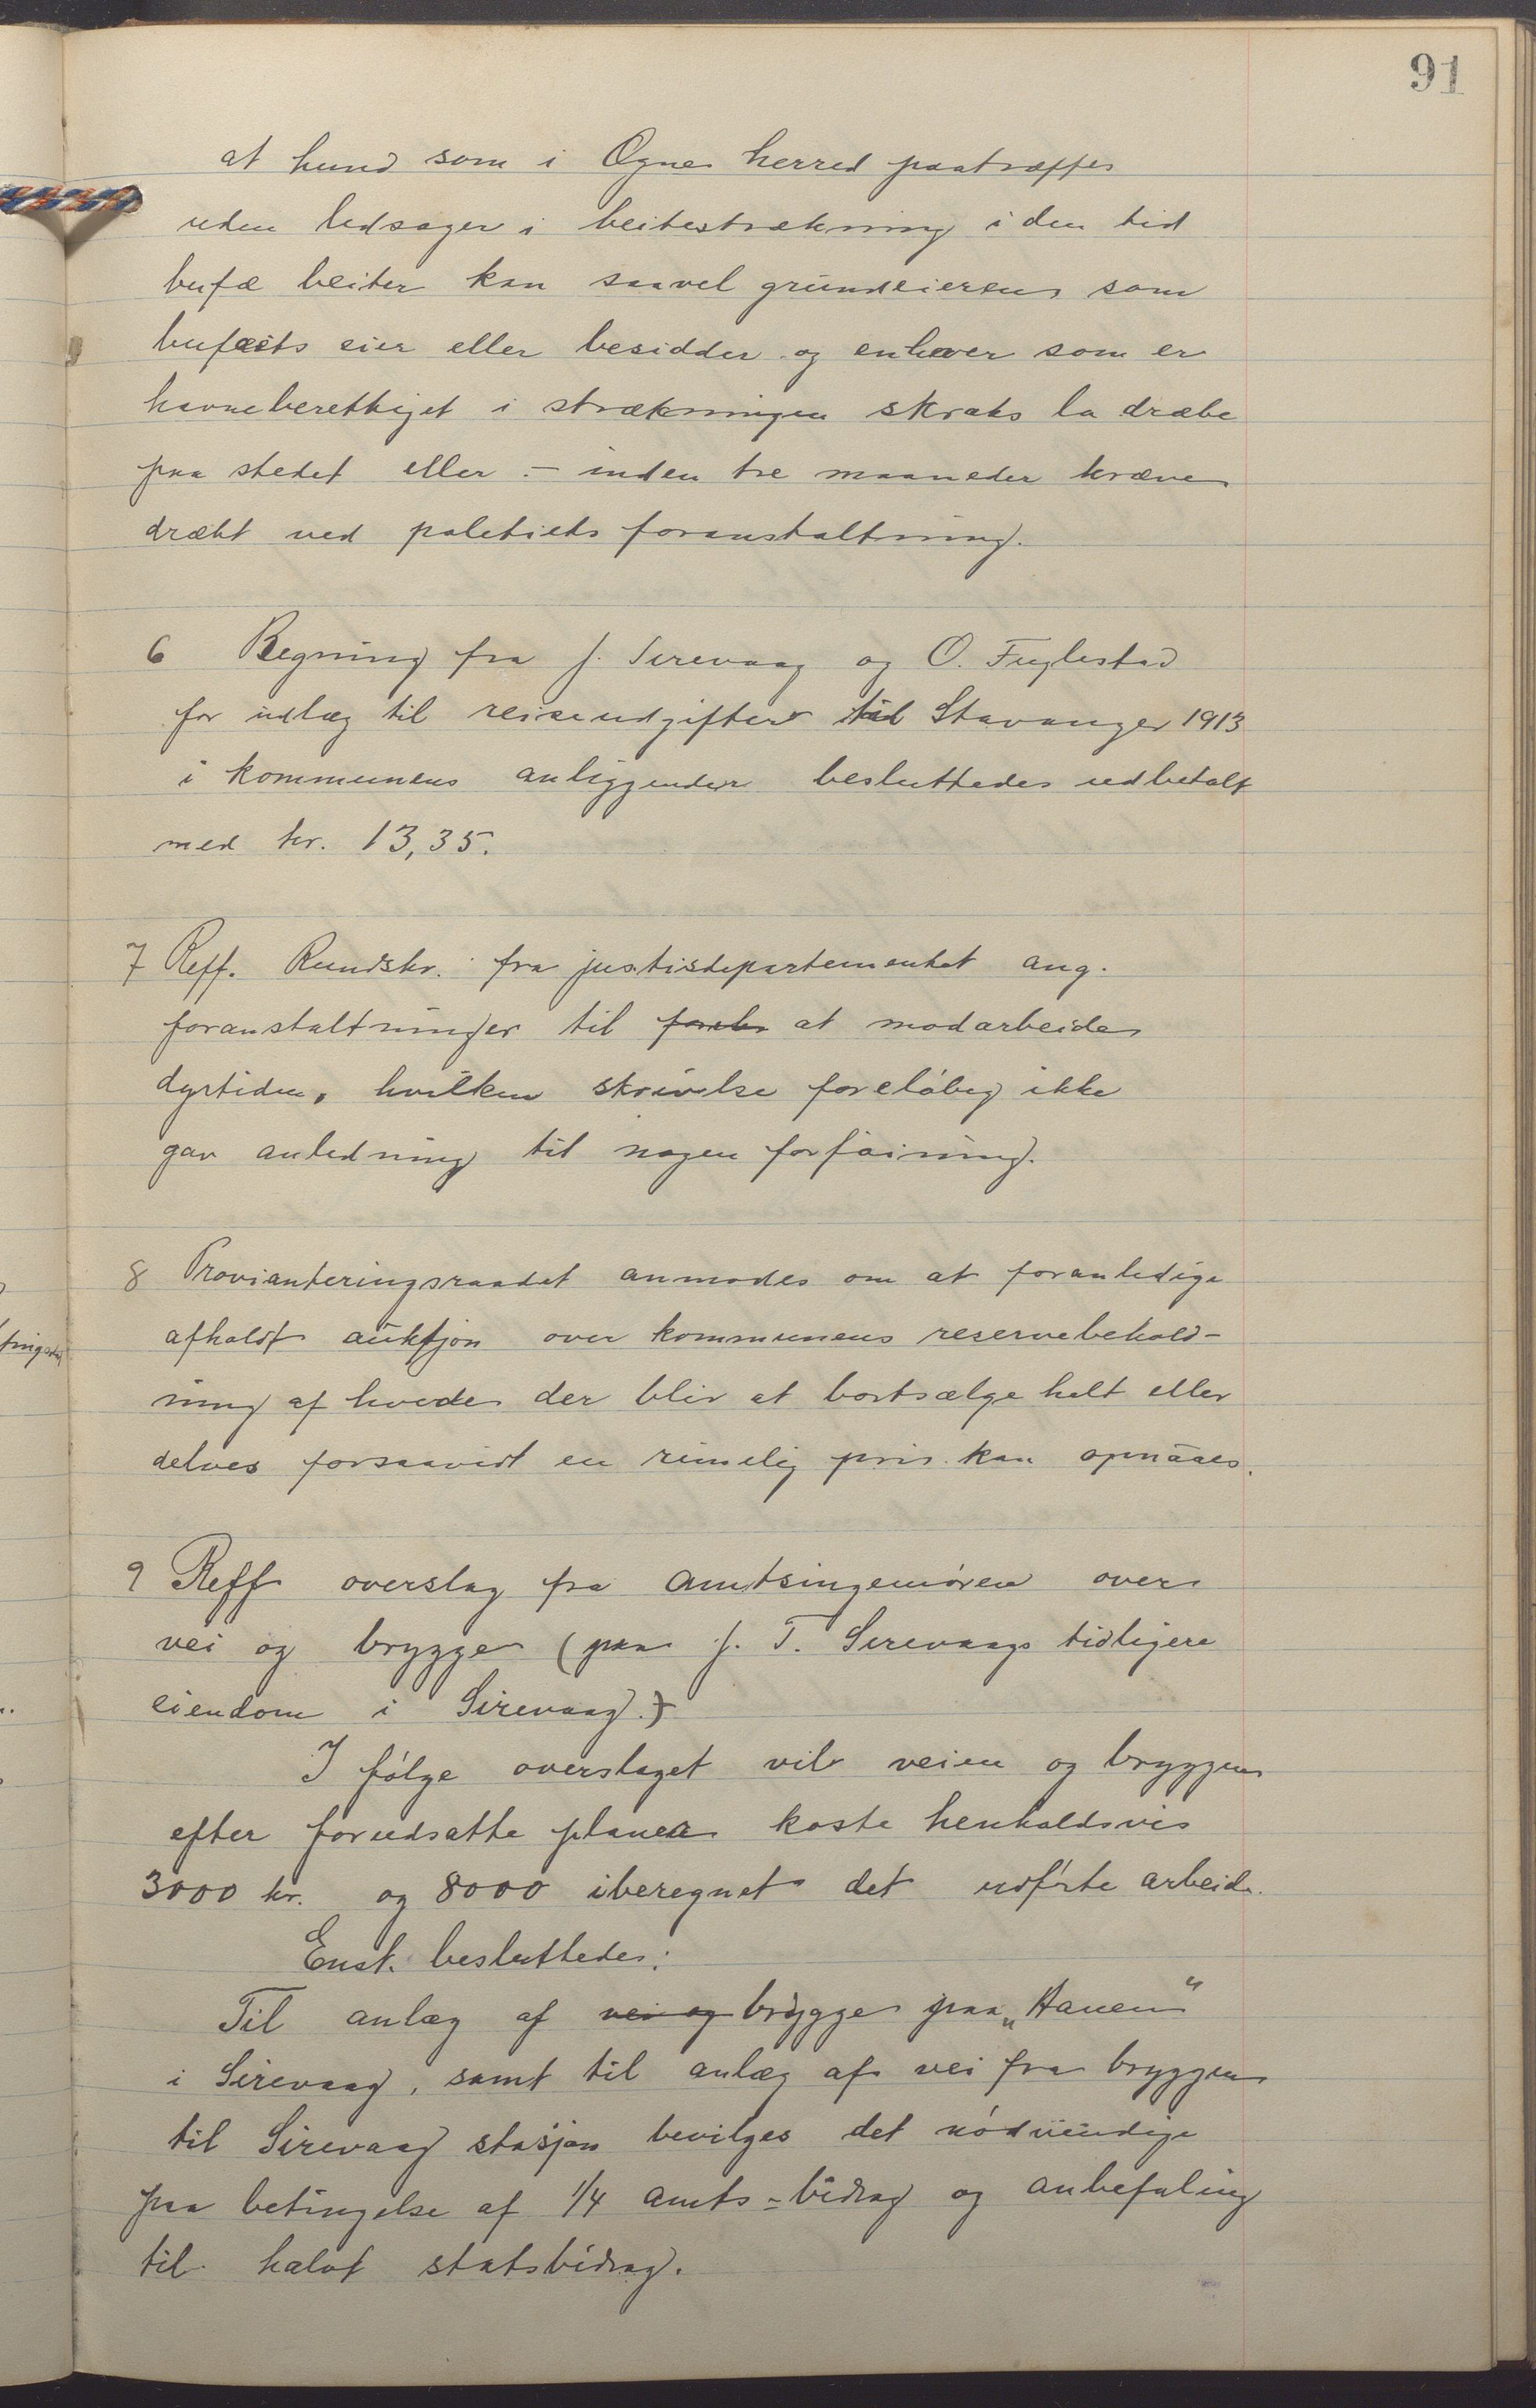 91
at hund som i Ogne herred paatræffes
uden ledsager i beitestrækning i den tid
bufæ beiter kan saavel grundeieren som
bufæets eier eller besidder og enhver som er
havneberettiget i strækningen straks la dræbe
paa stedet eller - inden tre maaneder kræve
dræbt ved politiets foranstaltning.
6 Regning fra J. Sirevaag og O. Fuglestad
for udlæg til reiseudgifter til Stavanger 1913
i kommunens anliggender besluttedes udbetalt
med kr. 13,35.
7 Reff. Rundskr. fra justisdepartementet ang.
foranstaltninger til at modarbeide
dyrtiden, hvilken skrivelse foreløbig ikke
gav anledning til nogen forføining.
8 Provianteringsraadet anmodes om at foranledige
afholdt auktjon over kommunens reservebehold-
ning af hvede der blir at bortsælge helt eller
delves forsaavidt en rimelig pris kan opnåaes.
9 Reff overslag fra amtsingeniøren over
vei og brygge (paa J. T. Sirevaags tidligere
eiendom i Sirevaag.)
I følge overslaget vil veien og bryggen
efter forudsatte planer koste henholdsvis
3000 kr. og 8000 iberegnet det udførte arbeide.
Enst. besluttedes:
Til anlæg af vei og brygge paa „Hauen“
i Sirevaag, samt til anlæg af vei fra bryggen
til Sirevaag stasjon bevilges det nødvendige
paa betingelse af 1/4 amts=bidrag og anbefaling
til halvt statsbidrag.